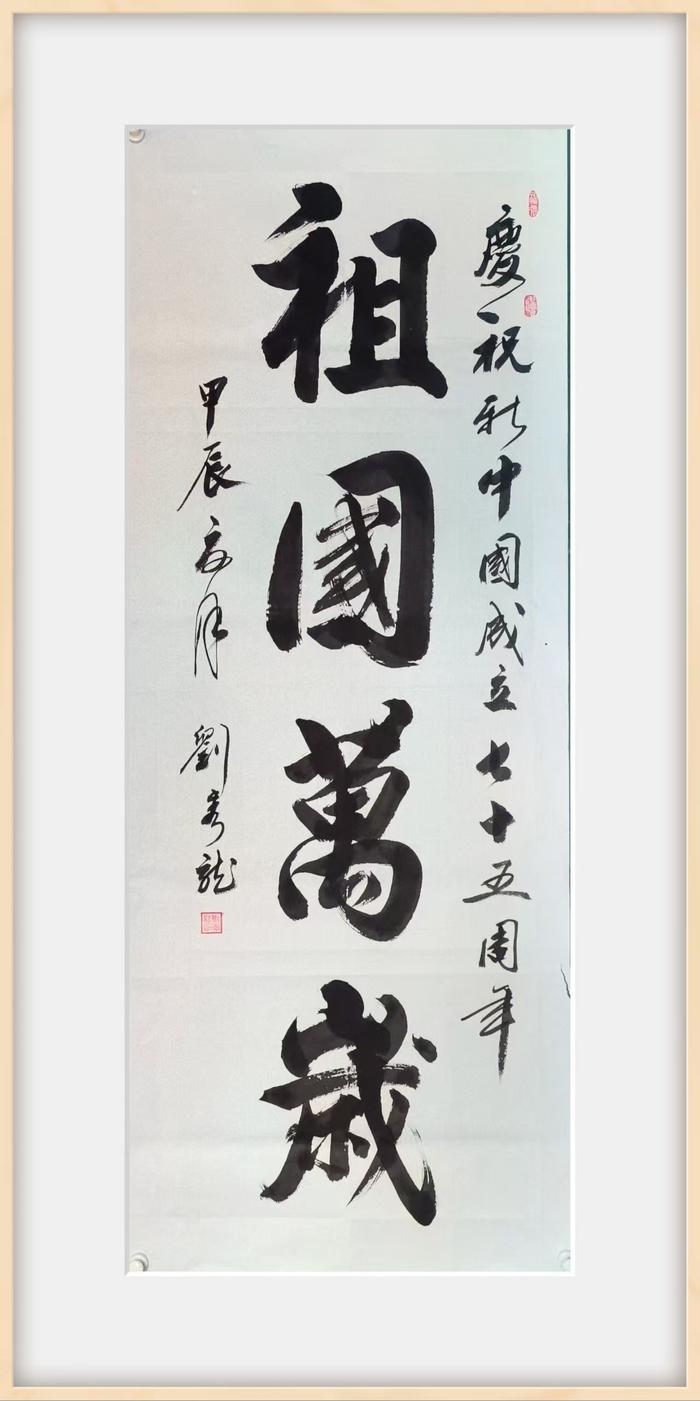 慶祝新中國成立七十五周年
祖國萬歲
甲辰年月
劉秀龍